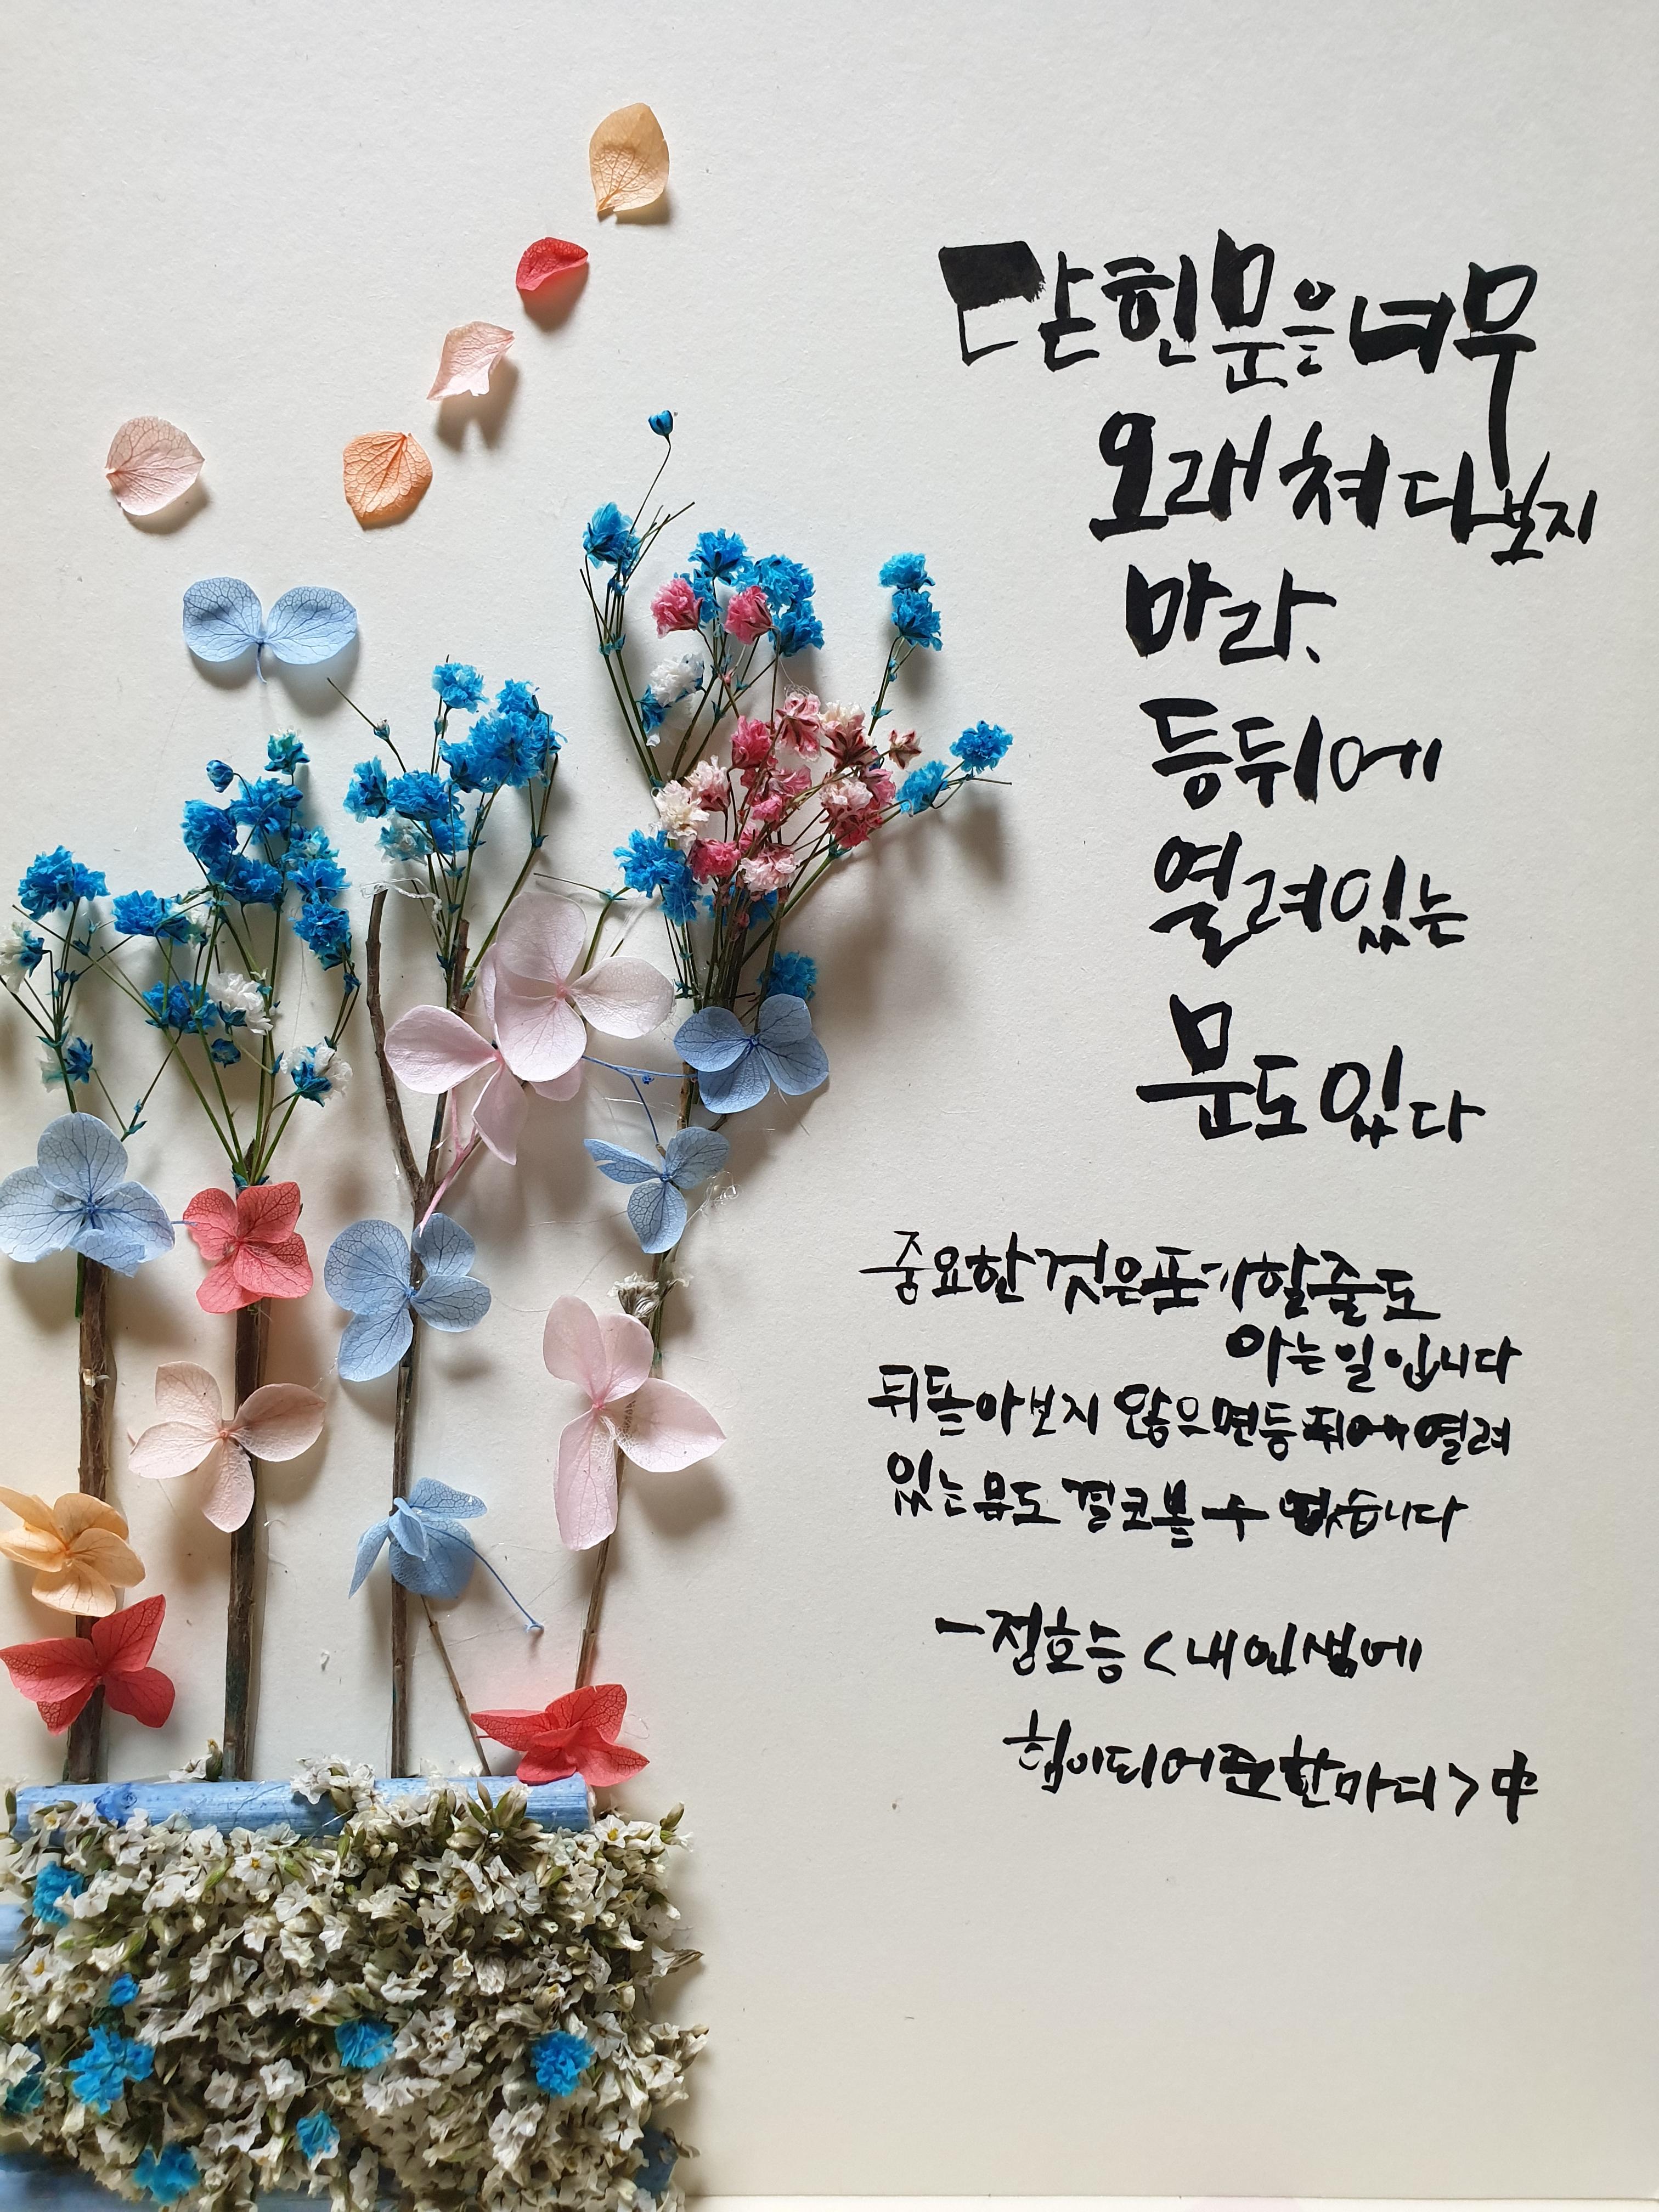 닫힌 문을 너무
오래 쳐다보지
마라.
등뒤에
열려있는
문도 있다
중요한 것은 포기할 줄도
아는 일입니다
뒤돌아보지 않으면 등 뒤에 열려
있는 문도 결코 볼 수 없습니다
- 정호승 <내 인생에
힘이 되어준 한마디> 中